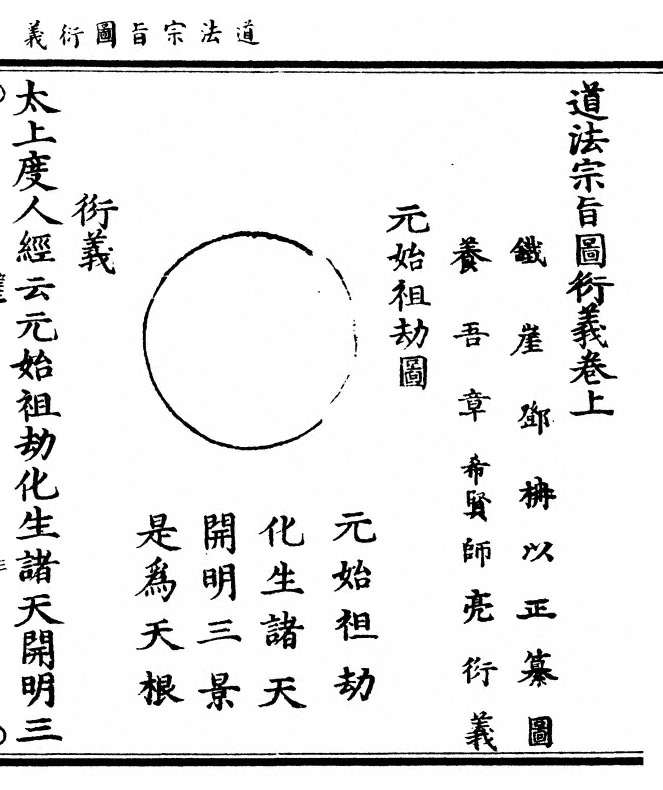 道法宗旨圖衍義
道法宗旨圖衍義卷上
鐵崖鄧柟以正纂圖
養吾章希賢師亮衍義
元始祖劫圖
元始祖劫
化生諸天
開明三景
是爲天根
衍義
太上度人經云元始祖劫化生諸天開明三